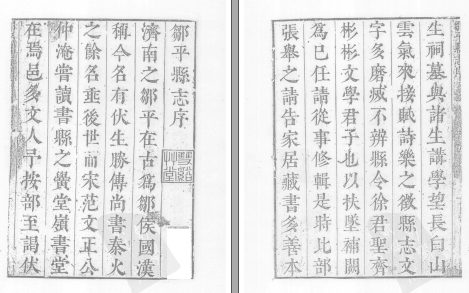 鄒平縣志序
濟南之鄒平在古爲鄒侯國漢
稱今名有伏生勝傳尚書秦火
之餘名垂後世前宋范文正公
仲淹嘗讀書縣之黌堂嶺書堂
在焉邑多文人予按部至謁伏
生祠墓與諸生講學望長白山
雲氣來接賦詩樂之徵縣志文
字多磨滅不辨縣令徐君聖齊
彬彬文學君子也以扶墜補闕
爲已任請從事修輯是時比部
張舉之請告家居藏書多善本